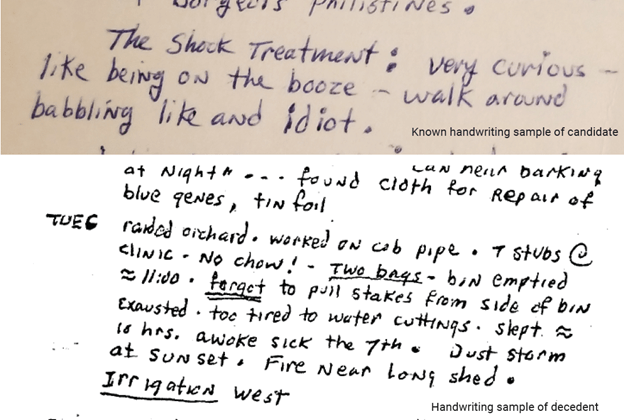 Borgeois Philistines.
The Shock Treatment: very curious –
like being on the booze – walk around
babbling like and idiot.
Known handwriting sample of candidate
can near barking
at Night" --- found cloth for Repair of
blue genes, tin foil
TUE 6 raided orchard. worked on cob pipe. 7 stubs @
clinic. No chow! - Two bags - bin emptied
≈ 11:00. forgot to pull stakes from side of bin
Exausted. too tired to water cuttings. slept ≈
10 hrs. awoke sick the 7th. Dust storm
at sunset. Fire Near Long shed.
Irrigation West
Handwriting sample of decedent